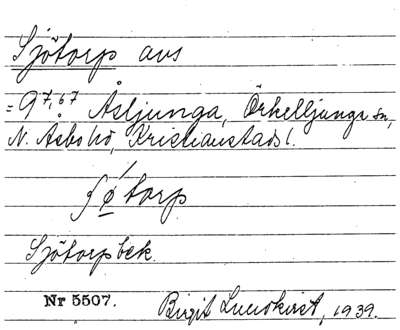 Sjötorp avs
= 9 7, 67 Åsljunga, Örkelljunga sn,
N. Åsbo hd, Kristianstads l.
ʃø´torp
Sjötorpbek.
Nr 5507. Birgit Lundkvist, 1939.